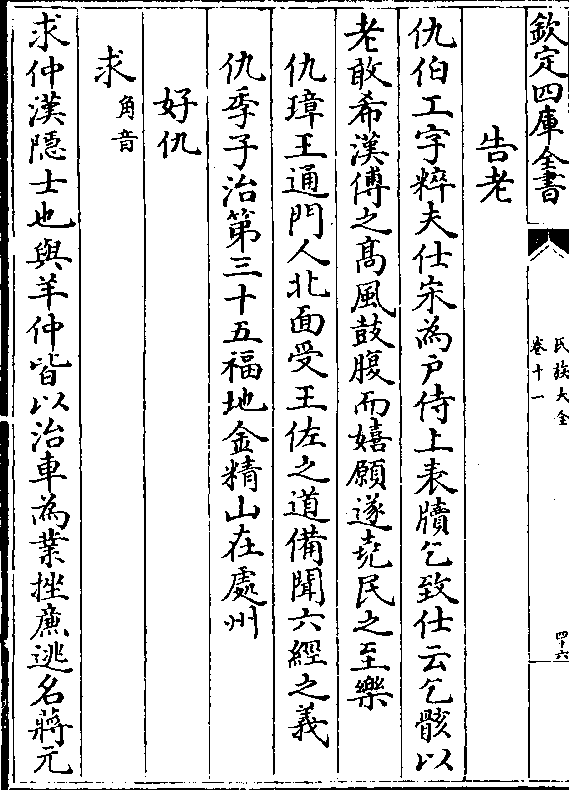 欽定四庫全書
氏族大全
卷十一
四十六
告老
仇伯工字粹夫仕宋為户侍上表牘乞致仕云乞骸以
老敢希漢傅之髙風鼓腹而嬉願遂堯民之至樂
仇璋王通門人北面受王佐之道備聞六經之義
仇季子治第三十五福地金精山在處州
好仇
求角音
求仲漢隱士也與羊仲皆以治車為業挫㢘逃名蔣元